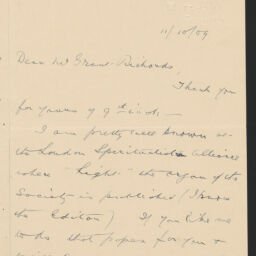 11/10/09
Dear Mr Grant-Richards,
Thank you
for yours of 9th inst: —
I am pretty well known at
the London Spiritualist Alliance
where "Light" the organ of the
Society is published (I know
the Editor) If you like me
to do that paper for you &